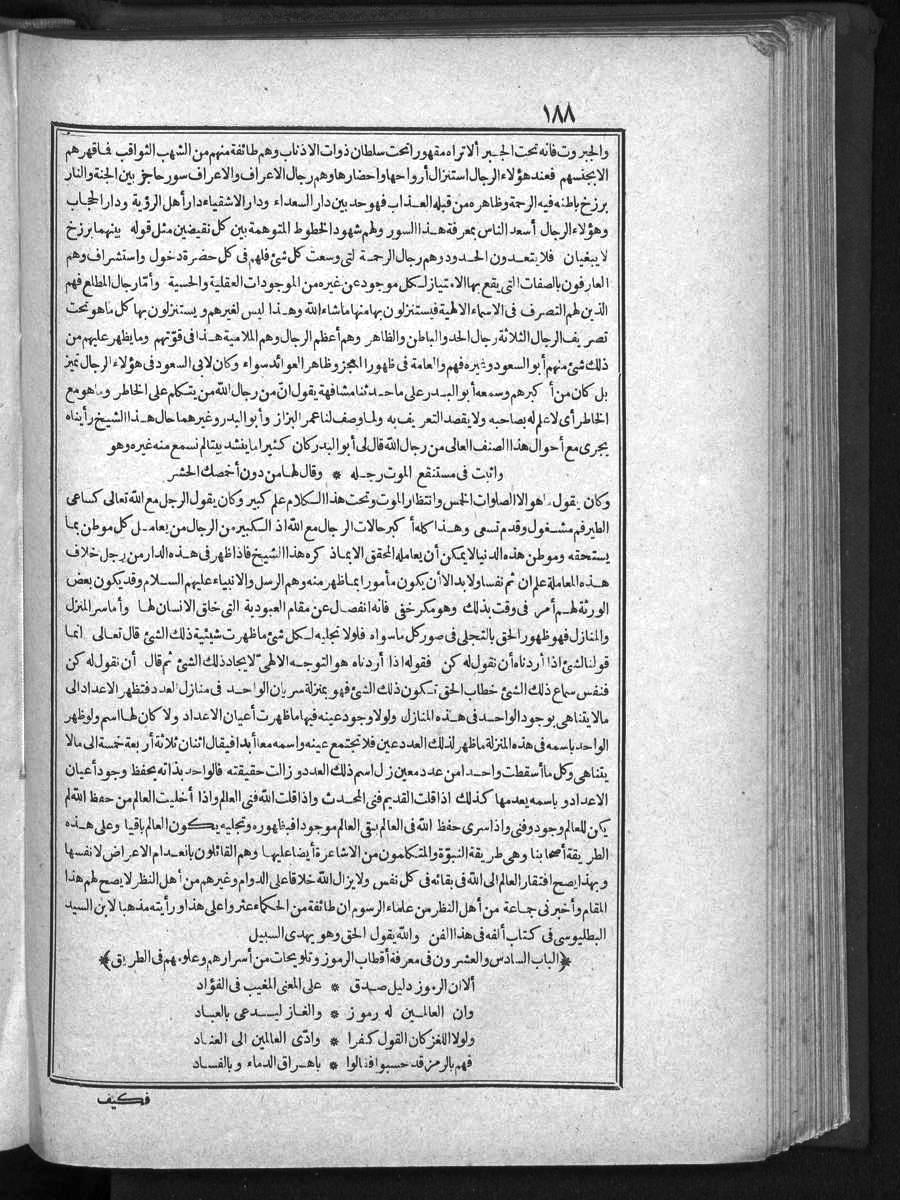 ١٨٨
والجبروت فانه تحت الجبر ألاتراه مقهورا تحت سلطان ذوات الاذناب وهم طائفة منهم من الشهب الثواقب فما قهرهم
الابجنسهم فعند هؤلاء الرجال استنزال أرواحها واحضارها وهم رجال الاعراف والاعراف سور حاجز بين الجنة والنار
برزخ باطنه فيه الرحمة وظاهره من قبله العذاب فهو حد بين دار السعداء ودار الاشقياء دار أهل الرؤية ودار الحجاب
وهؤلاء الرجال أسعد الناس بمعرفة هذا السور ولهم شهود الخطوط المتوهمة بين كل نقيضين مثل قوله بينهما برزخ
لا يبغيان فلا يتعدون الحدود وهم رجال الرحمة التي وسعت كل شئ فلهم في كل حضرة دخول واستشراف وهم
العارفون بالصفات التي يقع بها الامتياز لكل موجود عن غيره من الموجودات العقلية والحسية وأمّا رجال المطلع فهم
الذين لهم التصرف في الاسماء الالهية فيستنزلون بها منها ماشاء الله وهذا ليس لغيرهم ويستنزلون بها كل ماهو تحت
تصريف الرجال الثلاثة رجال الحد والباطن والظاهر وهم أعظم الرجال وهم الملامية هذا في قوّتهم ومايظهر عليهم من
ذلك شئ منهم أبو السعود وغيره فهم والعامة في ظهور العجز وظاهر العوائد سواء وكان لابى السعود في هؤلاء الرجال تميز
بل كان من أكبرهم وسمعه أبو البدر على ماحدثنا مشافهة يقول انّ من رجال الله من يتكلم على الخاطر وماهو مع
الخاطر أى لاعلم له بصاحبه ولا يقصد التعريف به ولما وصف لنا عمر البزاز وأبو البدر وغيرهما حال هذا الشيخ رأيناه
يجرى مع أحوال هذا الصنف العالى من رجال الله قال لى أبو البدر كان كثيرا ماينشد بيتا لم نسمع منه غيره وهو
واثبت في مستنقع الموت رجله * وقال لها من دون أخمصك الحشر
وكان يقول ماهو الا الصلوات الخمس وانتظار الموت وتحت هذا الكلام علم كبير وكان يقول الرجل مع الله تعالى كساعى
الطير فم مشغول وقدم تسعى وهذا كله أكبر حالات الرجال مع الله اذ الكبير من الرجال من يعامل كل موطن بما
يستحقه وموطن هذه الدنيا لا يمكن أن يعامله المحقق الابما ذكره هذا الشيخ فاذا ظهر في هذه الدار من رجل خلاف
هذه المعاملة علم ان ثم نفسا ولا بد الاأن يكون مأمورا بما ظهر منه وهم الرسل والانبياء عليهم السلام وقد يكون بعض
الورثة لهم أمر في وقت بذلك وهو مكر خفى فانه انفصال عن مقام العبودية التى خلق الانسان لها وأما سر المنزل
والمنازل فهو ظهور الحق بالتجلى في صور كل ماسواه فلولا تجليه لكل شئ ماظهرت شيئية ذلك الشئ قال تعالى انما
قولنا لشئ اذا أردناه أن نقول له كن فقوله اذا أردناه هو التوجه الالهىّ لايجاد ذلك الشئ ثم قال أن نقول له كن
فنفس سماع ذلك الشئ خطاب الحق تكون ذلك الشئ فهو بمنزلة سريان الواحد في منازل العدد فتظهر الاعداد الى
مالا يتناهى بوجود الواحد في هذه المنازل ولولا وجود عينه فيها ماظهرت أعيان الاعداد ولا كان لها اسم ولو ظهر
الواحد باسمه في هذه المنزلة ماظهر لذلك العدد عين فلا تجتمع عينه واسمه معا أبدا فيقال اثنان ثلاثة أربعة خمسة الى مالا
يتناهى وكل ماأسقطت واحدا من عدد معين زال اسم ذلك العدد وزالت حقيقته فالواحد بذاته يحفظ وجود أعيان
الاعداد و باسمه يعدمها كذلك اذا قلت القديم فنى المحدث واذا قلت الله فنى العالم واذا أخليت العالم من حفظ الله لم
يكن للعالم وجود وفنى واذا سرى حفظ الله في العالم بقى العالم موجودا فبظهوره وتجليه يكون العالم باقيا وعلى هذه
الطريقة أصحابنا وهى طريقة النبوّة والمتكلمون من الاشاعرة أيضا عليها وهم القائلون بانعدام الاعراض لانفسها
وبهذا يصح افتقار العالم الى الله في بقائه في كل نفس ولا يزال الله خلاقا على الدوام وغيرهم من أهل النظر لا يصح لهم هذا
المقام وأخبرنى جماعة من أهل النظر من علماء الرسوم ان طائفة من الحكماء عثروا على هذا ورأيته مذهبا لابن السيد
البطليوسى في كتاب ألفه في هذا الفن والله يقول الحق وهو يهدى السبيل
﴿الباب السادس والعشرون في معرفة أقطاب الرموز وتلويحات من أسرارهم وعلومهم في الطريق﴾
ألا ان الرموز دليل صدق * على المعنى المغيب في الفؤاد
وان العالمين له رموز * والغاز ليدعى بالعباد
ولولا اللغز كان القول كفرا * وادّى العالمين الى العناد
فهم بالرمز قد حسبوا فقالوا * باهراق الدماء وبالفساد
فكيف